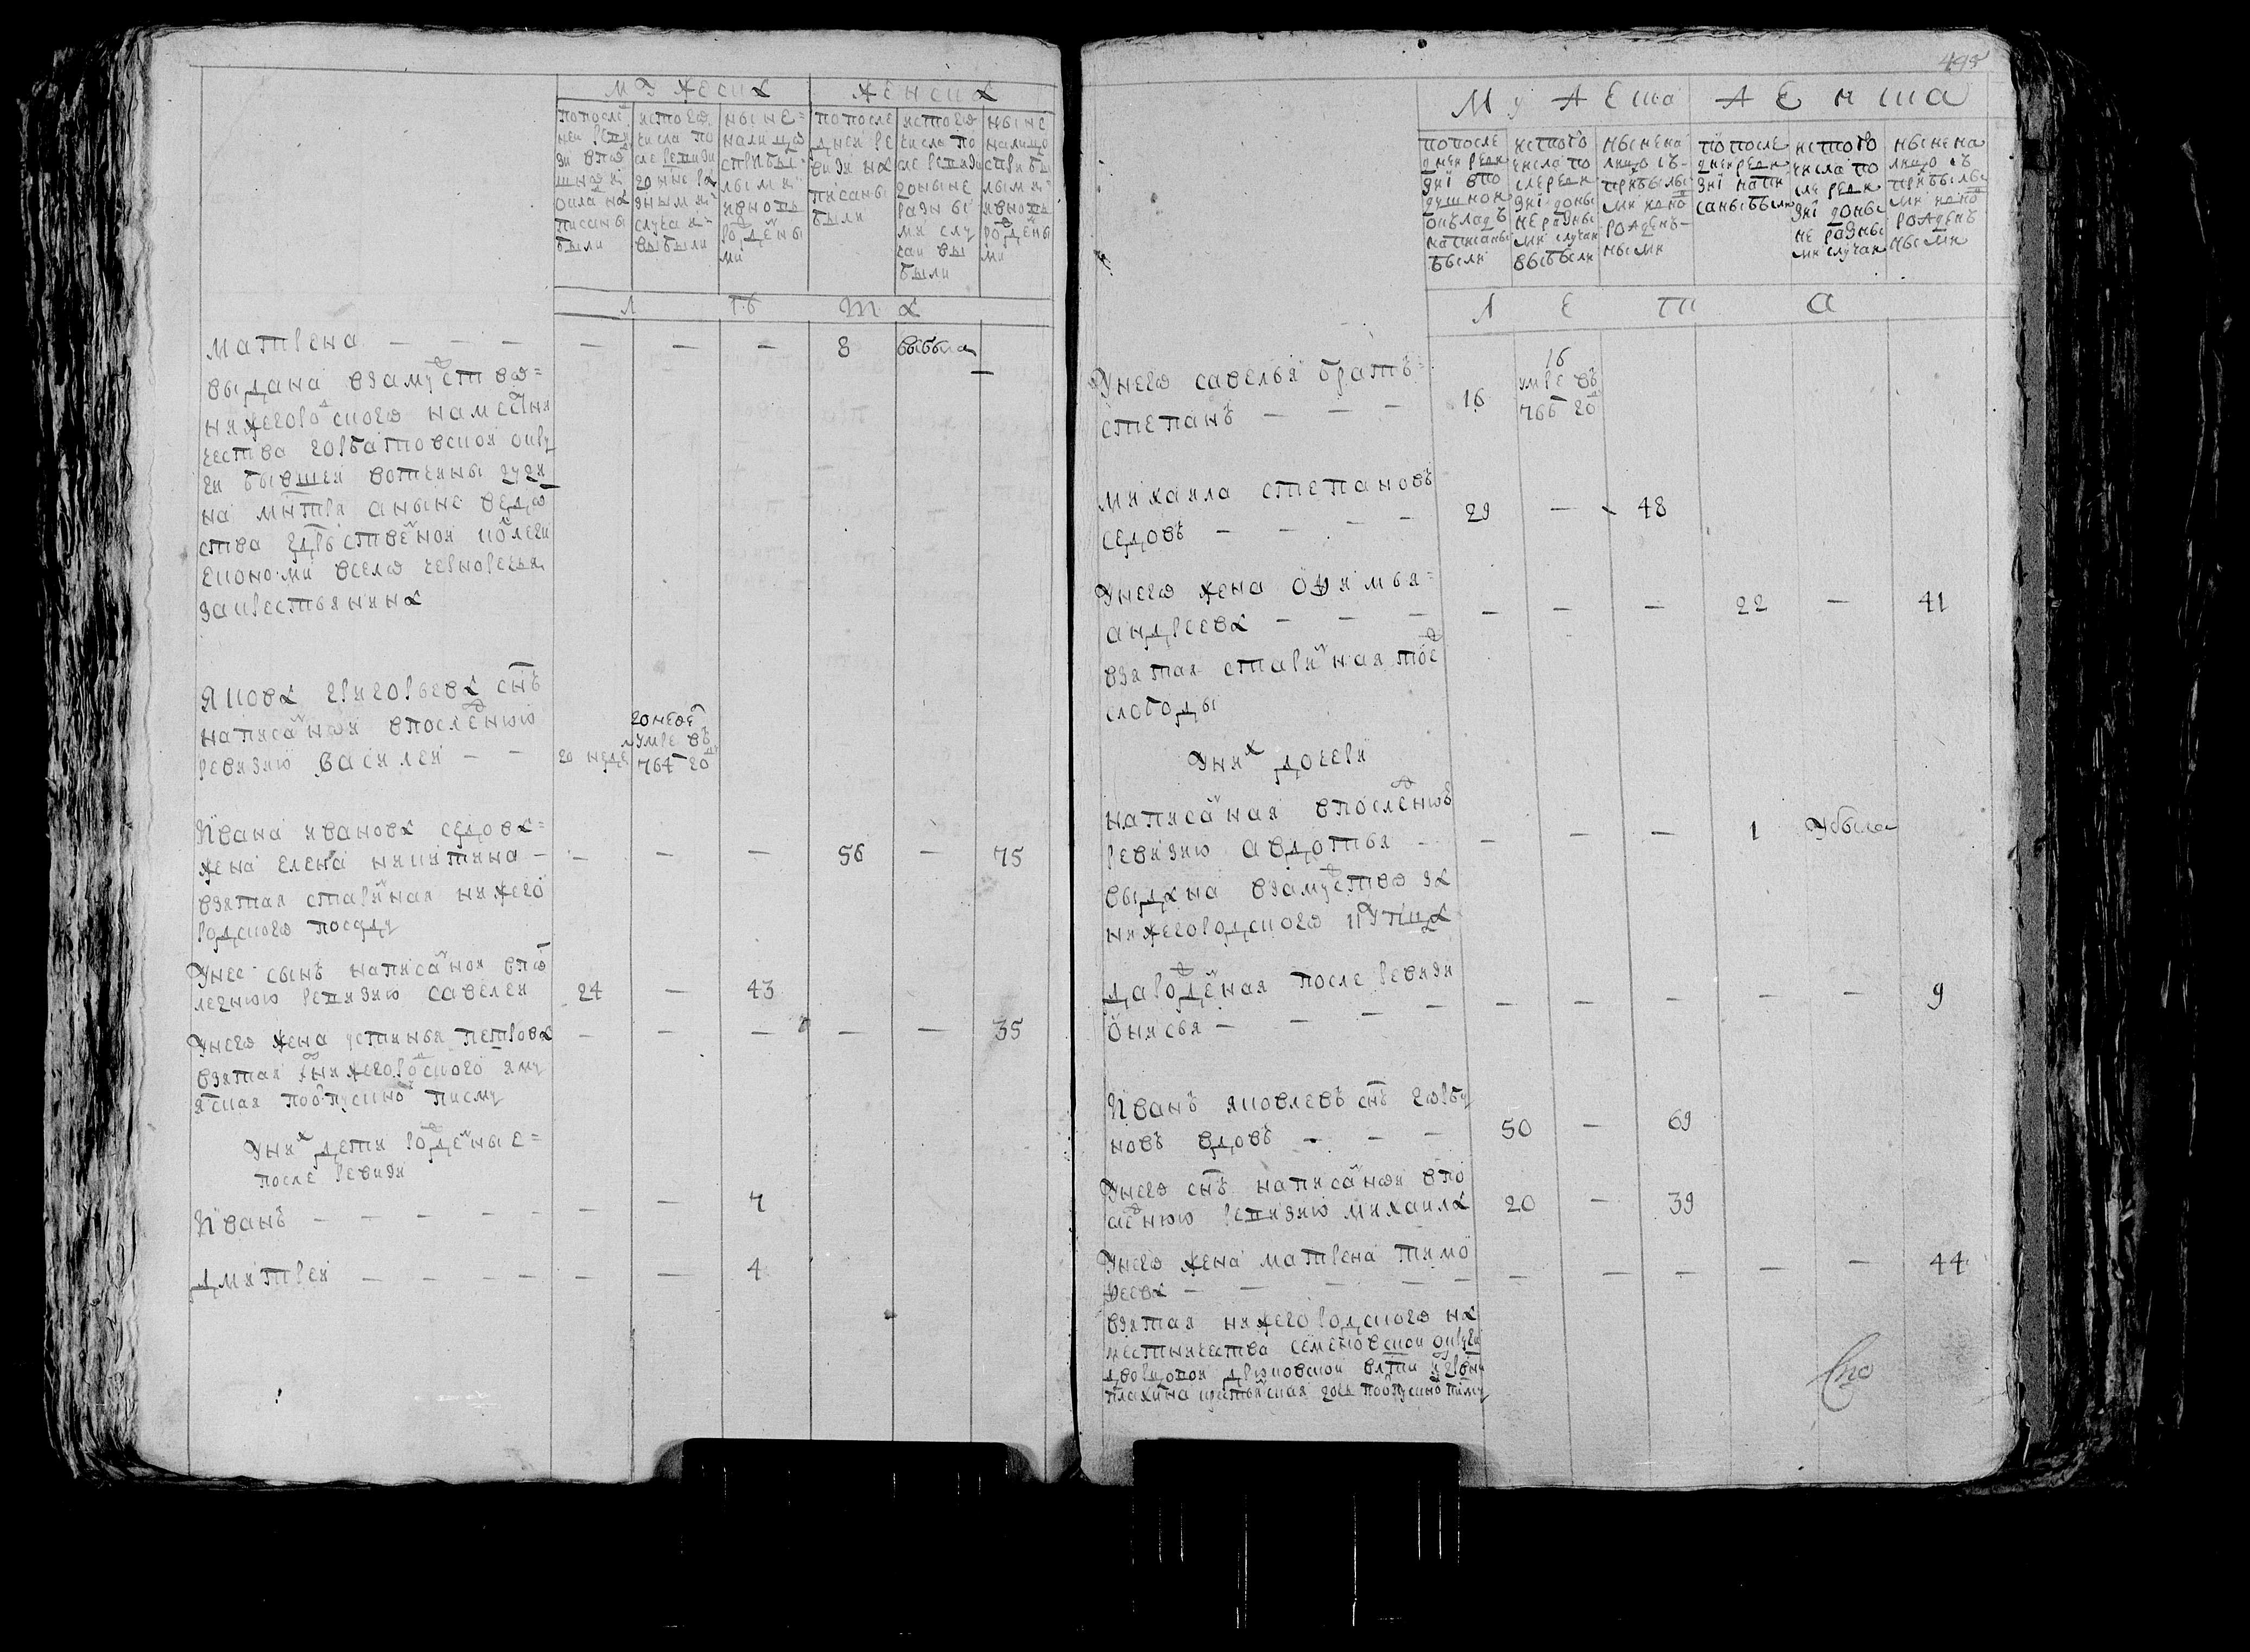 мужеска женска
попосле
ней реви
зи впо
душной
окла на
писаны
были
истого
числа по
сле ревизи
доныне ра
зными
случаи
выбыли
ныне
налицо
сприбы
лыми
ивновь
рожден
ми
попосле
дней ре
визи на
писаны
были
истого
числа по
сле ревизи
доныне
разны
ми слу
чаи вы
были
ныне
налицо
сприбы
лыми
ивновь
рожден
ми
лѣта
матрена — — — — — — 8 выбыла —
выдана взамуство
нижегороского наместни
чества горбатовской окру
ги бывшей вотчины
на митря аныне ведо
ства економи всело чернореча
закрестьянина
якова григорьева снъ
написаной впоследнюю
ревизию василей — — 20 неде 20 неде умре въ 764 го
Ивана иванова седова
жена елена никитина — — — — 56 — 75
взятая стариная нижего
родского посаду
Унее сынъ написаной впо
леднюю ревизию савелей 24 — 43
Унего жена устинья петрова — — — — — 35
взятая нижегороского яму
яская поопускно писму
Уних дети роденые
после ревизи
Иванъ — — — — — — — 7
дмитрей — — — — — — 4
498
Мужеска Женска
попосле
дней реви
зиї впо
душной
окладъ
написаны
были
истого
числа по
сле реви
зиї доны
не разны
ми случаи
выбыли
ныне на
лицо съ
прибылы
ми ино
рожденъ
ными
попосле
дней реви
зиї напи
саны были
истого
числа по
сле реви
зиї доны
не разны
ми случаи
ныне на
лицо съ
прибылы
ми ино
рожденъ
ными
лета
Унего савелья братъ
степанъ — — — 16 16 умре въ 766 го
михаила степановъ
седовъ — — — — 29 — 48
Унего жена офимья
андреева — — — — — — 22 — 41
взятая стариная тоє
слободы
Уних дочери
написаная впоследнюю
ревизию авдотья — — — — 1 Убыла
выдана взамуство за
нижегородского купца
дароденая после ревизи
онисья — — — — — — — — — 9
Иванъ яковлевъ снъ горбу
новъ вдовъ — — — 50 — 69
Унего снъ написаной впо
следнюю ревизию михаила 20 — 39
Унего жена матрена тимо
феева — — — — — — — — — 44
взятая нижегородского на
местничества семеновской округи
дворцовой дрюковской влти
плахина крестьянская дочь поопускно писму